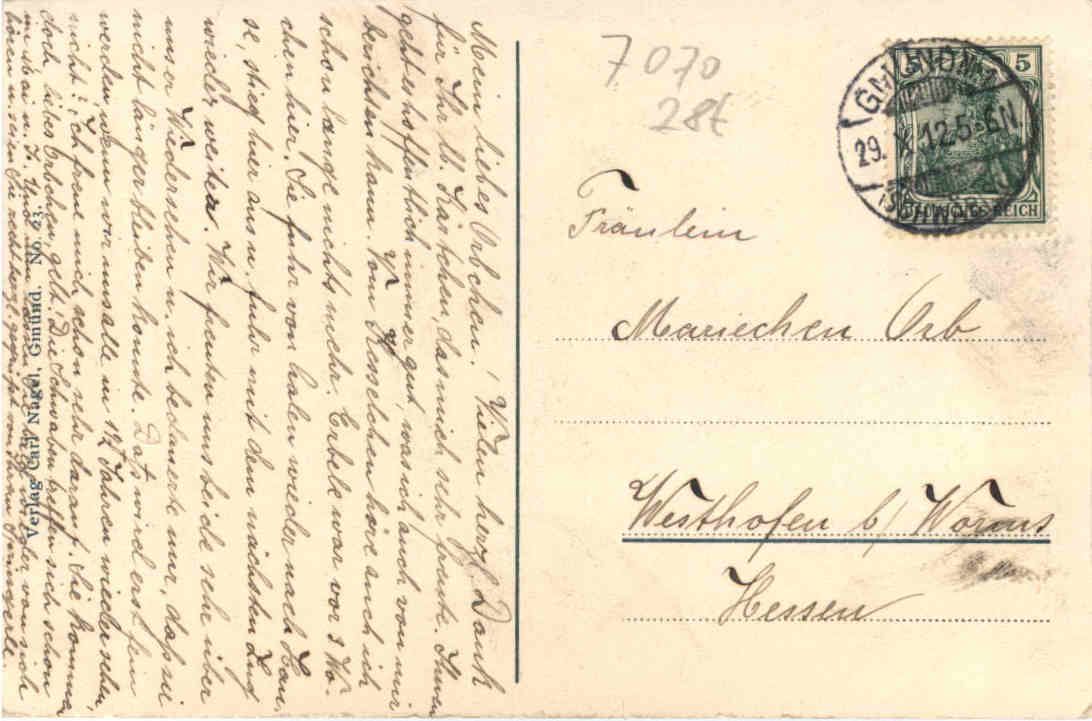 Mein liebes Orbchen! Vielen herzl. Dank
für Ihr lb. Kärtchen, das mich sehr freute. Ihnen
geht es hoffentlich immer gut, was ich auch von mir
berichten kann. Vom Resselchen höre auch ich
schon lange nichts mehr. Erbele war vor 3 Wo-
chen hier. Sie fuhr von Aalen wieder nach Hau-
se, stieg hier aus u. fuhr mit dem nächsten Zug
wieder weiter. Wir freuten uns beide sehr über
unser Wiedersehen u. ich bedauerte nur, daß sie
nicht länger bleiben konnte. Das wird erst fein
werden, wenn wir uns alle in 1½ Jahren wieder sehen,
nicht? Ich freue mich schon sehr darauf. Sie kommen
doch, liebes Orbchen, gelt? Die Schwaben treffen sich schon
im Mai
Verlag Carl Nagel, Gmünd. No. 63.
7070
28t
GMÜND
29. X. 12 5-6 N
(SCHWÄB.)
5
DEUTSCHES REICH
Fräulein
Mariechen Orb
Westhofen b/ Worms
Hessen